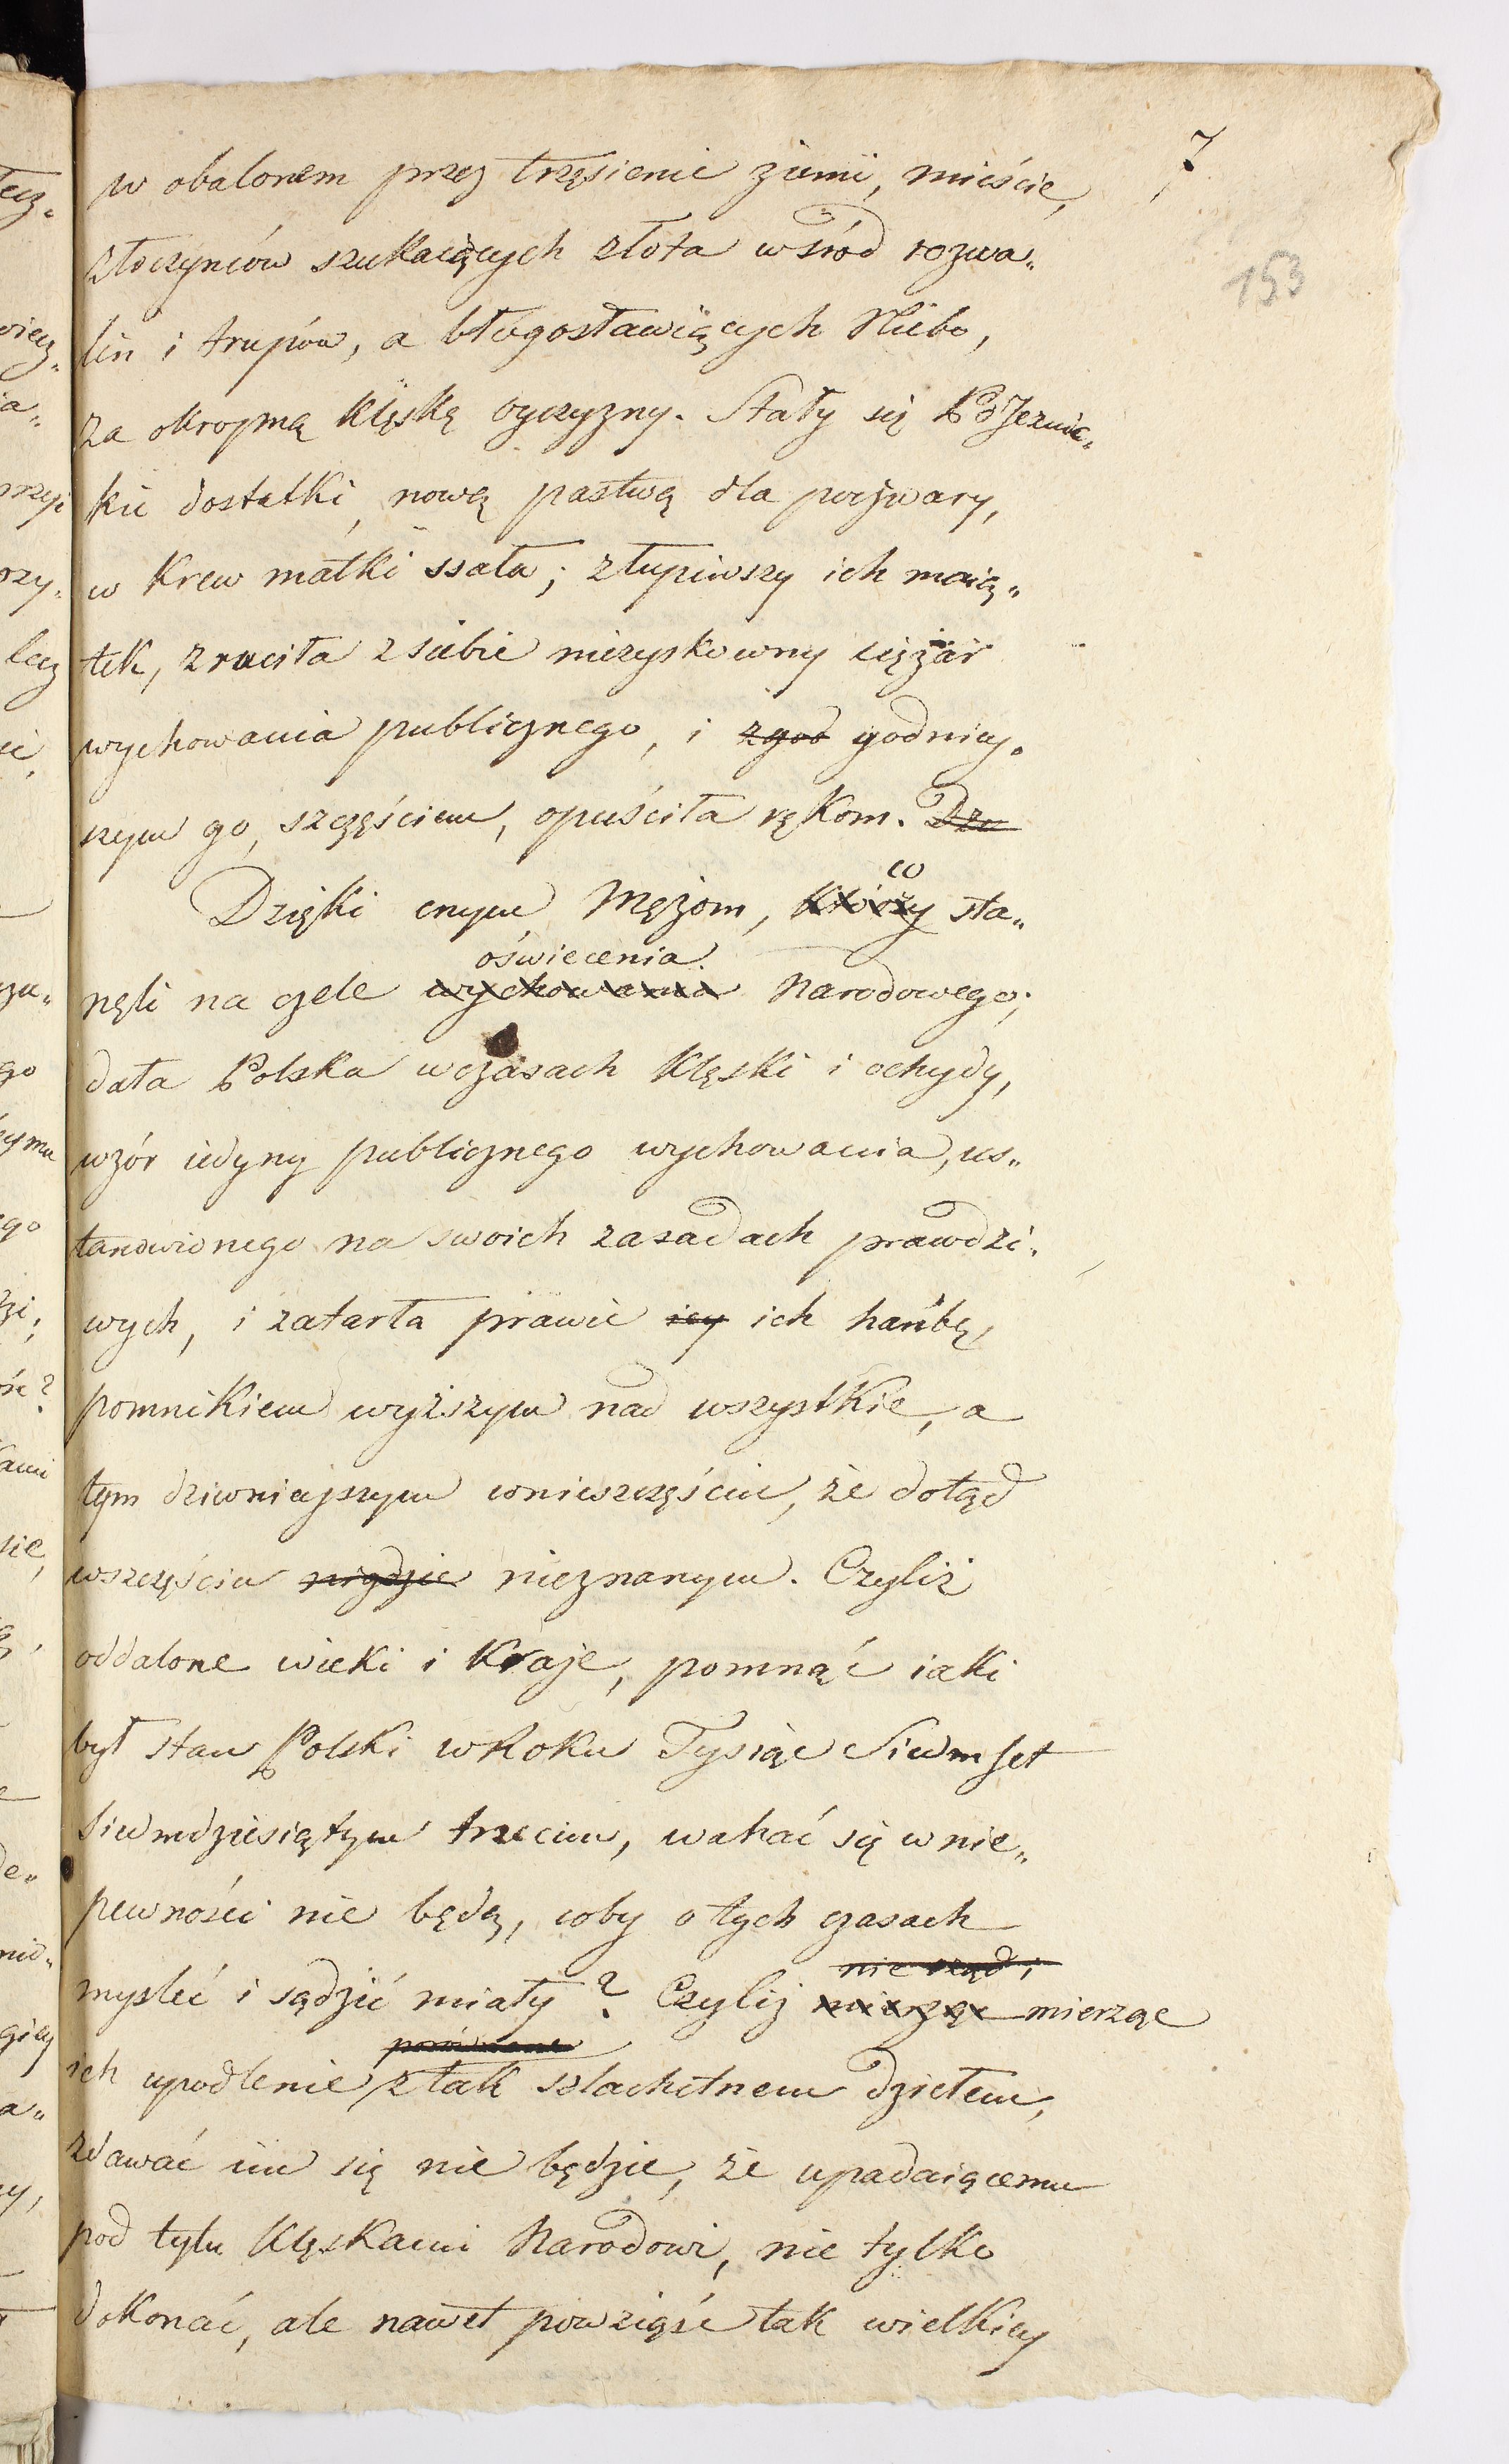 7
153
w obalonem przez trzęsienie ziemi, mieście,
złoczyńców szukaiących złota wśród rozwa„
lin i trupów, a błogosławiących Niebo,
za okropną klęskę oyczyzny. Stały się PoJezuic„
kie dostatki, nową pastwą dla poczwary,
w krew matki ssała; złupiwszy ich maią„
tek, zrzuciła z siebie niezyskowny ciężar
wychowania publicznego, i zgod godniey„
szym go, szczęściem, opuściła rękom. Dzu
Dzięki cnym Mężom, którzy co sta„
oświecenia
nęli na czele wychowania Narodowego;
dała Polska wczasach klęski i ochydy,
wzór iedyny publicznego wychowania, us„
tanowionego na swoich zasadach prawdzi„
wych, i zatarła prawie iey ich hańbę,
pomnikiem wyższym nad wszystkie, a
tym dziwnieyszym wnieszczęściu, że dotąd
wszczęściu nigdzie nieznanym. Czyliż
oddalone wieki i kraje, pomnąć iaki
był stan Polski wRoku Tysiąc Siedmset
siedmdziesiątym trzecim, wahać się wnie„
pewności nie będą, coby o tych czasach
nierząd i
mysleć i sądzić miały? Czyliż mierząc mierząc
porównane
ich upodlenie z tak szlachetnem dziełem,
zdawać im się nie będzie, że upadaiącemu
pod tylu klęskami Narodowi, nie tylko
dokonać, ale nawet powziąść tak wielkiey